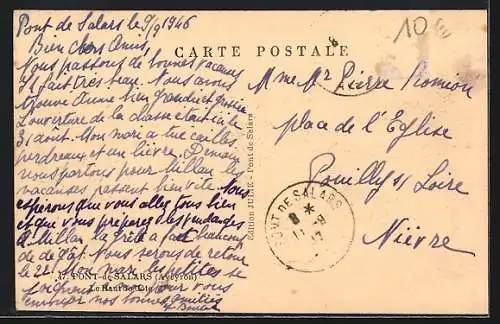 Pont de Salars le 9/9 1946
Bien chers Amis,
Nous passons de bonnes vacances
Il fait très beau. Nous avons
trouvé Anne bien grandie et grossie
L'ouverture de la chasse était le
31 août. Mon mari a tué cailles,
perdreaux et un lièvre. Demain
nous partons pour Millau les
vacances passent bien vite. Nous
espérons que vous allez tous bien
et que vous
Millau la grêle a fait beaucoup
de dégât. Nous serons de retour
le 22. Mon mari les petites se
joignent à moi pour vous
envoyer nos bonnes amitiés
CARTE POSTALE
10
Mme Mr Pierre Romion
place de l'Eglise
Pouilly s/ Loire
Nièvre
PONT DE SALARS
Edition JURE - Pont de Salars
PONT-de-SALARS (Aveyron)
Le Haut de